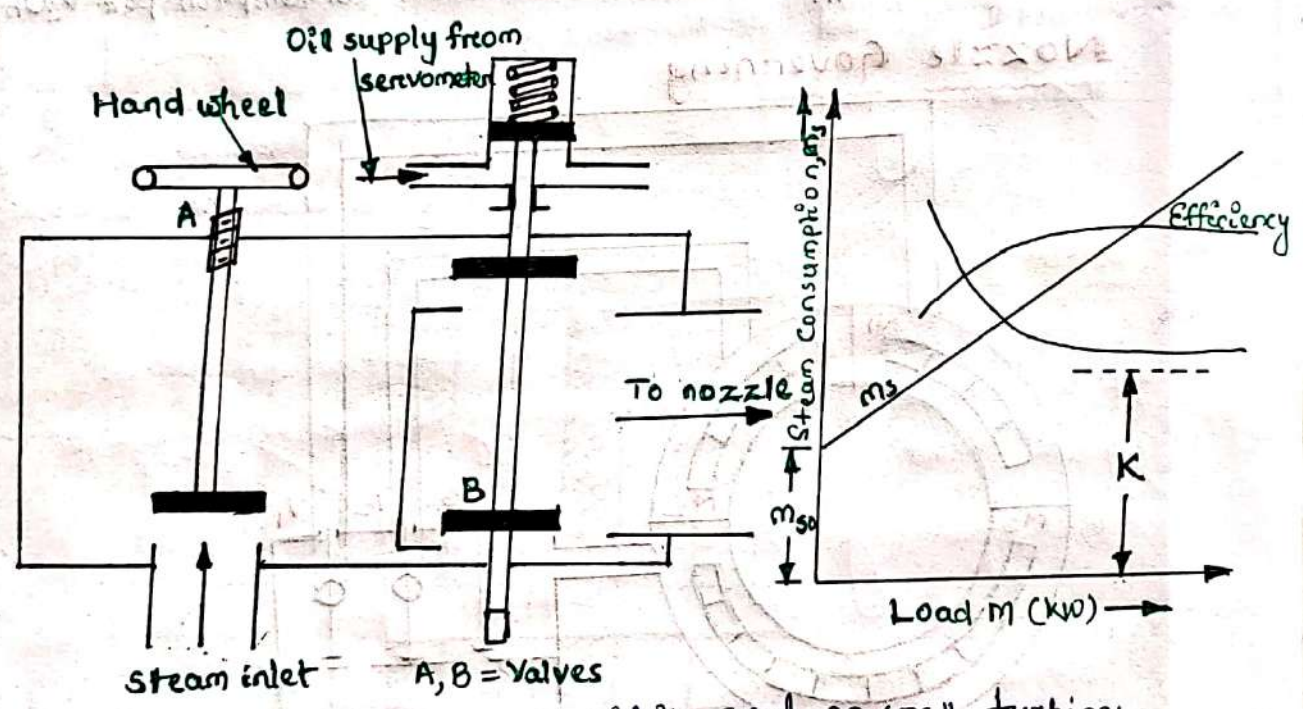 Oil supply from
servometer
Hand wheel
A
B
To nozzle
Steam inlet
A, B = Valves
Steam Consumption, ms
Efficiency
ms
mso
K
Load m (kW)
turbine